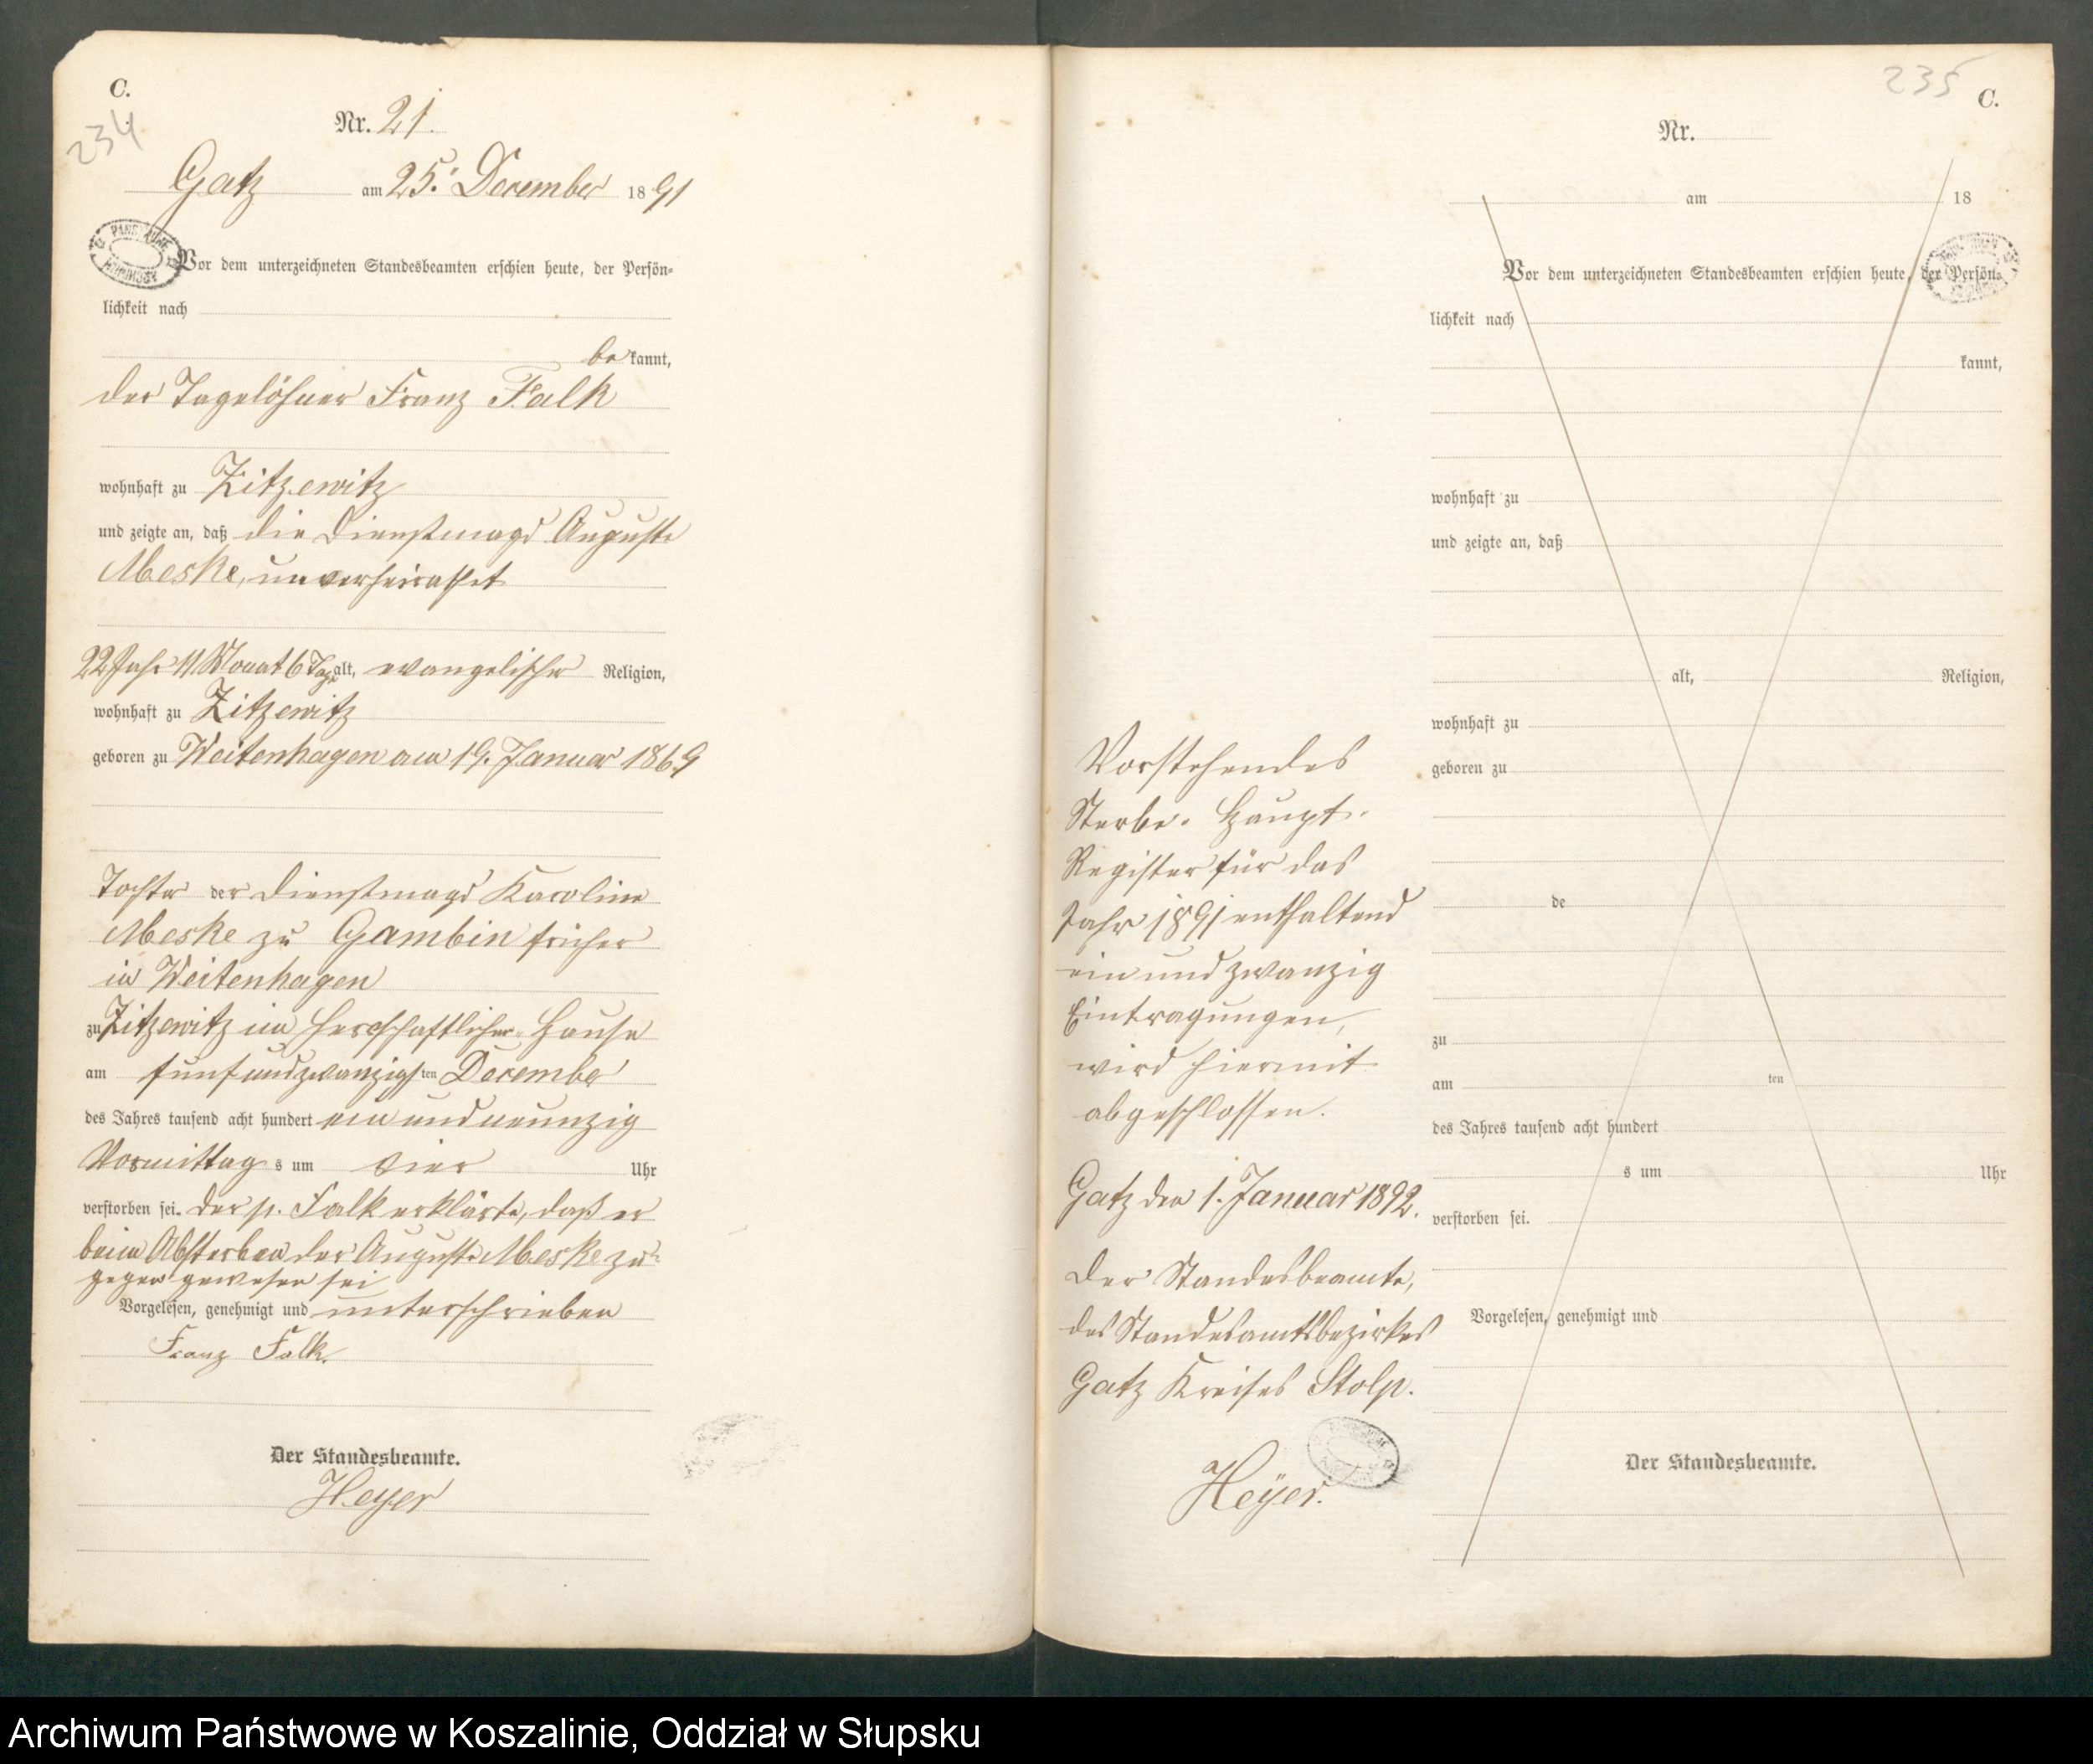 C.
234
Nr. 21.
Gatz am 25. December 1891
Vor dem unterzeichneten Standesbeamten erschien heute, der Persön-
lichkeit nach
bekannt,
der Tagelöhner Franz Falk
wohnhaft zu Zitzewitz
und zeigte an, daß die Dienstmagd Auguste
Meske, unverheirathet
22 Jahr 11 Monat 6 Tage alt, evangelischer Religion,
wohnhaft zu Zitzewitz
geboren zu Weitenhagen am 19. Januar 1869
Tochter der Dienstmagd Karoline
Meske zu Gambin früher
in Weitenhagen
zu Zitzewitz im herrschaftlichen Hause
am fünfundzwanzigsten December
des Jahres tausend acht hundert ein und neunzig
Vormittags um vier Uhr
verstorben sei. Der p. Falk erklärte, daß er
beim Absterben der Auguste Meske zu-
gegen gewesen sei
Vorgelesen, genehmigt und unterschrieben
Franz Falk.
Der Standesbeamte.
Heyer
235
C.
Nr.
am 18
Vor dem unterzeichneten Standesbeamten erschien heute, der Persön-
lichkeit nach
kannt,
wohnhaft zu
und zeigte an, daß
alt, Religion,
wohnhaft zu
geboren zu
de
zu
am ten
des Jahres tausend acht hundert
s um Uhr
verstorben sei.
Vorgelesen, genehmigt und
Der Standesbeamte.
Vorstehendes
Sterbe-Haupt-
Register für das
Jahr 1891 enthaltend
ein und zwanzig
Eintragungen,
wird hiermit
abgeschlossen.
Gatz den 1. Januar 1892.
Der Standesbeamte,
des Standesamtsbezirkes
Gatz Kreises Stolp.
Heyer.
Archiwum Państwowe w Koszalinie, Oddział w Słupsku